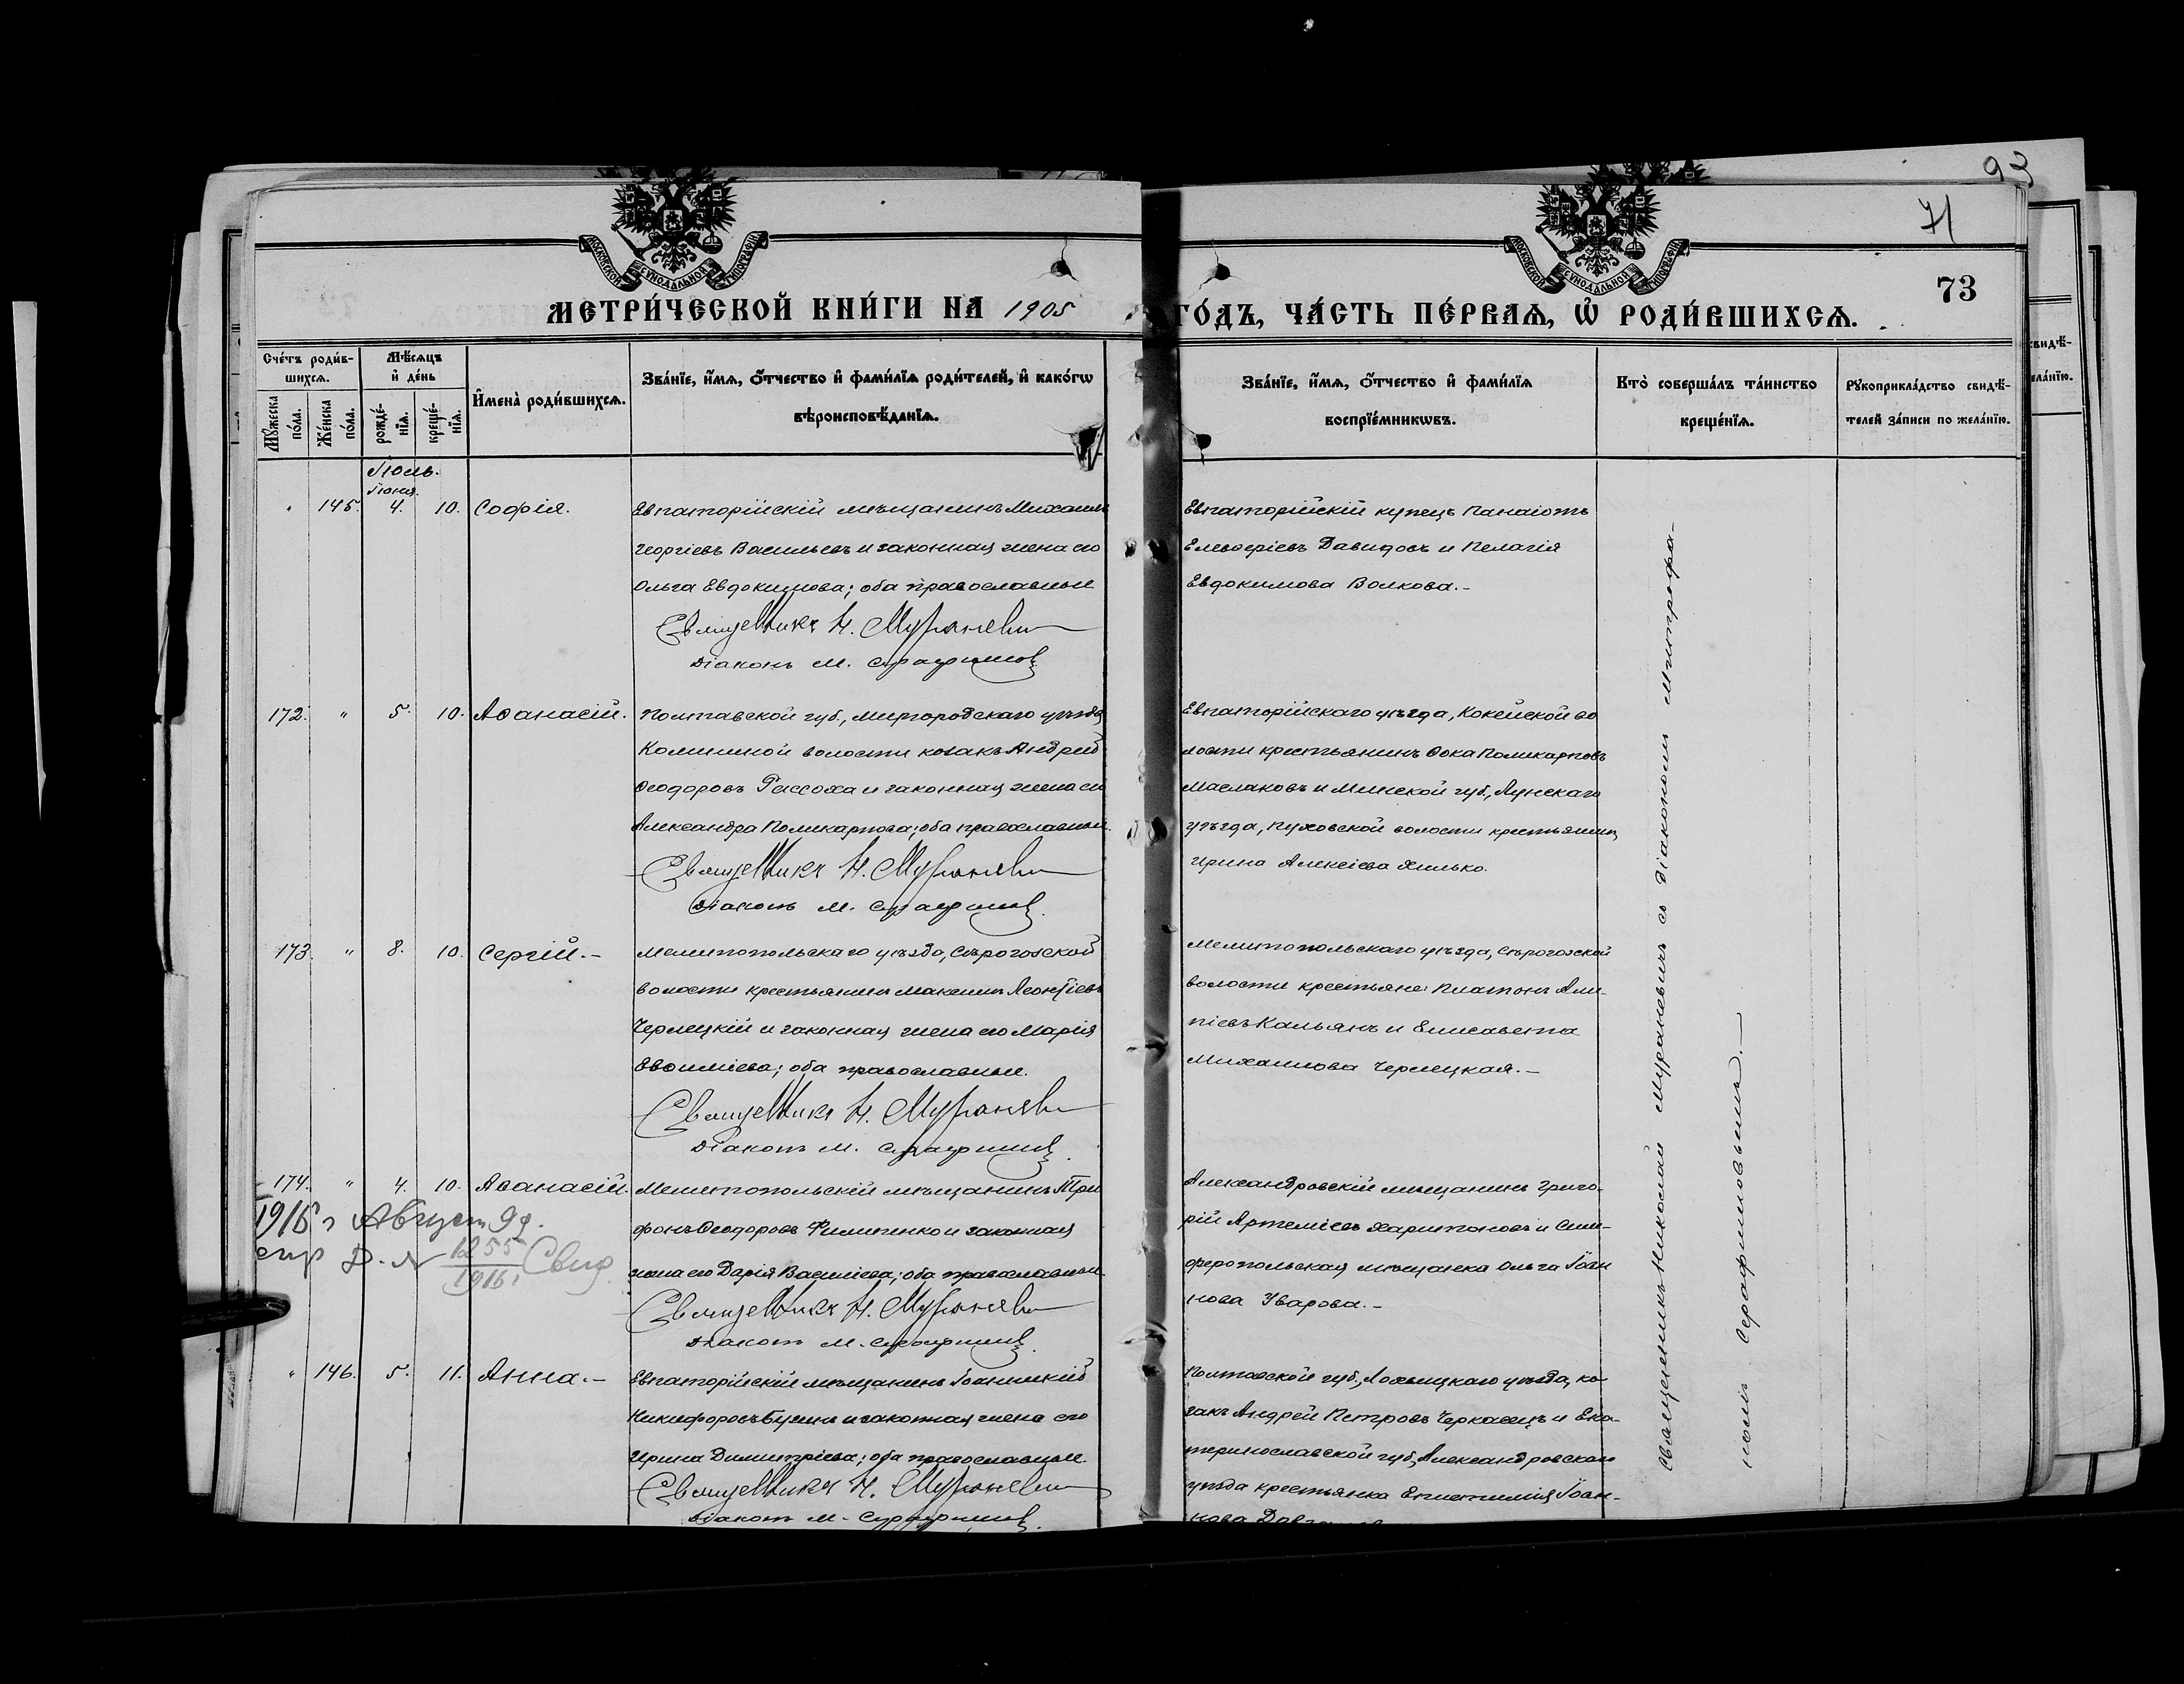 93
71
73
МОСКОВСКОЙ СУНОДАЛЬНОЙ ТИПОГРАФІИ
МОСКОВСКОЙ СУНОДАЛЬНОЙ ТИПОГРАФІИ
МЕТРИ́ЧЕСКОЙ КНИ́ГИ НА 1905 ГО́ДЪ, ЧА́СТЬ ПЕ́РВАѦ, Ѡ҆ РОДИ́ВШИХСѦ.
Сче́тъ роди́в-
шихсѧ.
Мѹ́жеска по́ла.
Же́нска по́ла.
Мѣ́сѧцъ
и҆ де́нь
рожде́-
нїѧ.
креще́-
нїѧ.
И҆мена̀ роди́вшихсѧ.
Зва́нїе, и҆́мѧ, ѻ҆́тчество и҆ фами́лїѧ роди́телей, и҆ како́гѡ
вѣроисповѣ́данїѧ.
Зва́нїе, и҆́мѧ, ѻ҆́тчество и҆ фами́лїѧ
воспрїе́мникѡвъ.
Кто̀ соверша́лъ та́инство
креще́нїѧ.
Рѹкоприкла́дство свидѣ́-
телей за́писи по жела́нїю.
Іюль.
Іюня.
" 145. 4. 10. Софія.
Евпаторійскій мѣщанинъ Михаилъ
Георгіевъ Васильевъ и законная жена его
Ольга Евдокимова; оба православные
Священникъ Н. Мураневич
Діаконъ М. Серафимов
Евпаторійскій купецъ Панаіотъ
Елевѳеріевъ Давидовъ и Пелагія
Евдокимова Волкова.-
172. " 5. 10. Аѳанасій.
Полтавской губ., Миргородскаго уѣзда,
волости козакъ Андрей
Ѳеодоровъ Рассоха и законная жена его
Александра Поликарпова; оба православные.
Священникъ Н. Мураневич
Діаконъ М. Серафимов
Евпаторійскаго уѣзда, Кокейской во
лости крестьянинъ Ѳока Поликарповъ
Маслаковъ и Минской губ.,
уѣзда, Пуховской волости крестьянка
Ирина Алексіева Хилько.
173. " 8. 10. Сергій.-
Мелитопольскаго уѣзда, Сѣрогозской
волости крестьянинъ Максимъ Леонтіевъ
Чернецкій и законная жена его Марія
Евѳиміева; оба православные.
Священникъ Н. Мураневич
Діаконъ М. Серафимов
Мелитопольскаго уѣзда, Сѣрогозской
волости крестьяне: Платонъ Али-
піевъ Кальянъ и Елисавета
Михаилова Чернецкая.-
174. " 4. 10. Аѳанасій.
1916 г Август 9 д.
1255
1916 г Свид.
Мелитопольскій мѣщанинъ Три
фонъ Ѳеодоровъ Филипенко и законная
жена его Дарія Василіева; оба православные
Священникъ Н. Мураневич
Діаконъ М. Серафимов
Александровскій мѣщанинъ Григо-
рій Артеміевъ Харитоновъ и Сим-
феропольская мѣщанка Ольга Іоан
нова Уварова.-
" 146. 5. 11. Анна.-
Евпаторійскій мѣщанинъ Іоанникій
Никифоровъ и законная жена его
Ирина Димитріева; оба православные.
Священникъ Н. Мураневич
Діаконъ М. Серафимов
Полтавской губ., Лохвицкаго уѣзда, ко-
закъ Андрей Петровъ Черкасецъ и Ека-
теринославской губ., Александровскаго
уѣзда крестьянка Епистимія Іоан-
нова
Священникъ Николай Мураневичъ съ діакономъ Митрофа-
номъ Серафимовымъ.-
свидѣ́-
ела́нїю.